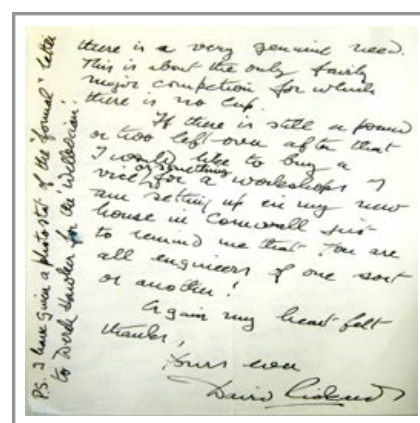 there is a very genuine need.
This is about the only fairly
major competion for which
there is no Cup.
If there is still a pound
or two left over after that
I would like to buy a
or something
vice for a workshop I
am setting up in my new
house in Cornwall just
to remind me that you are
all engineers of one sort
or another!
Again my heart felt
thanks,
Yours ever
David
P.S. I have given a photostat of the "formal" letter
to Derek for the